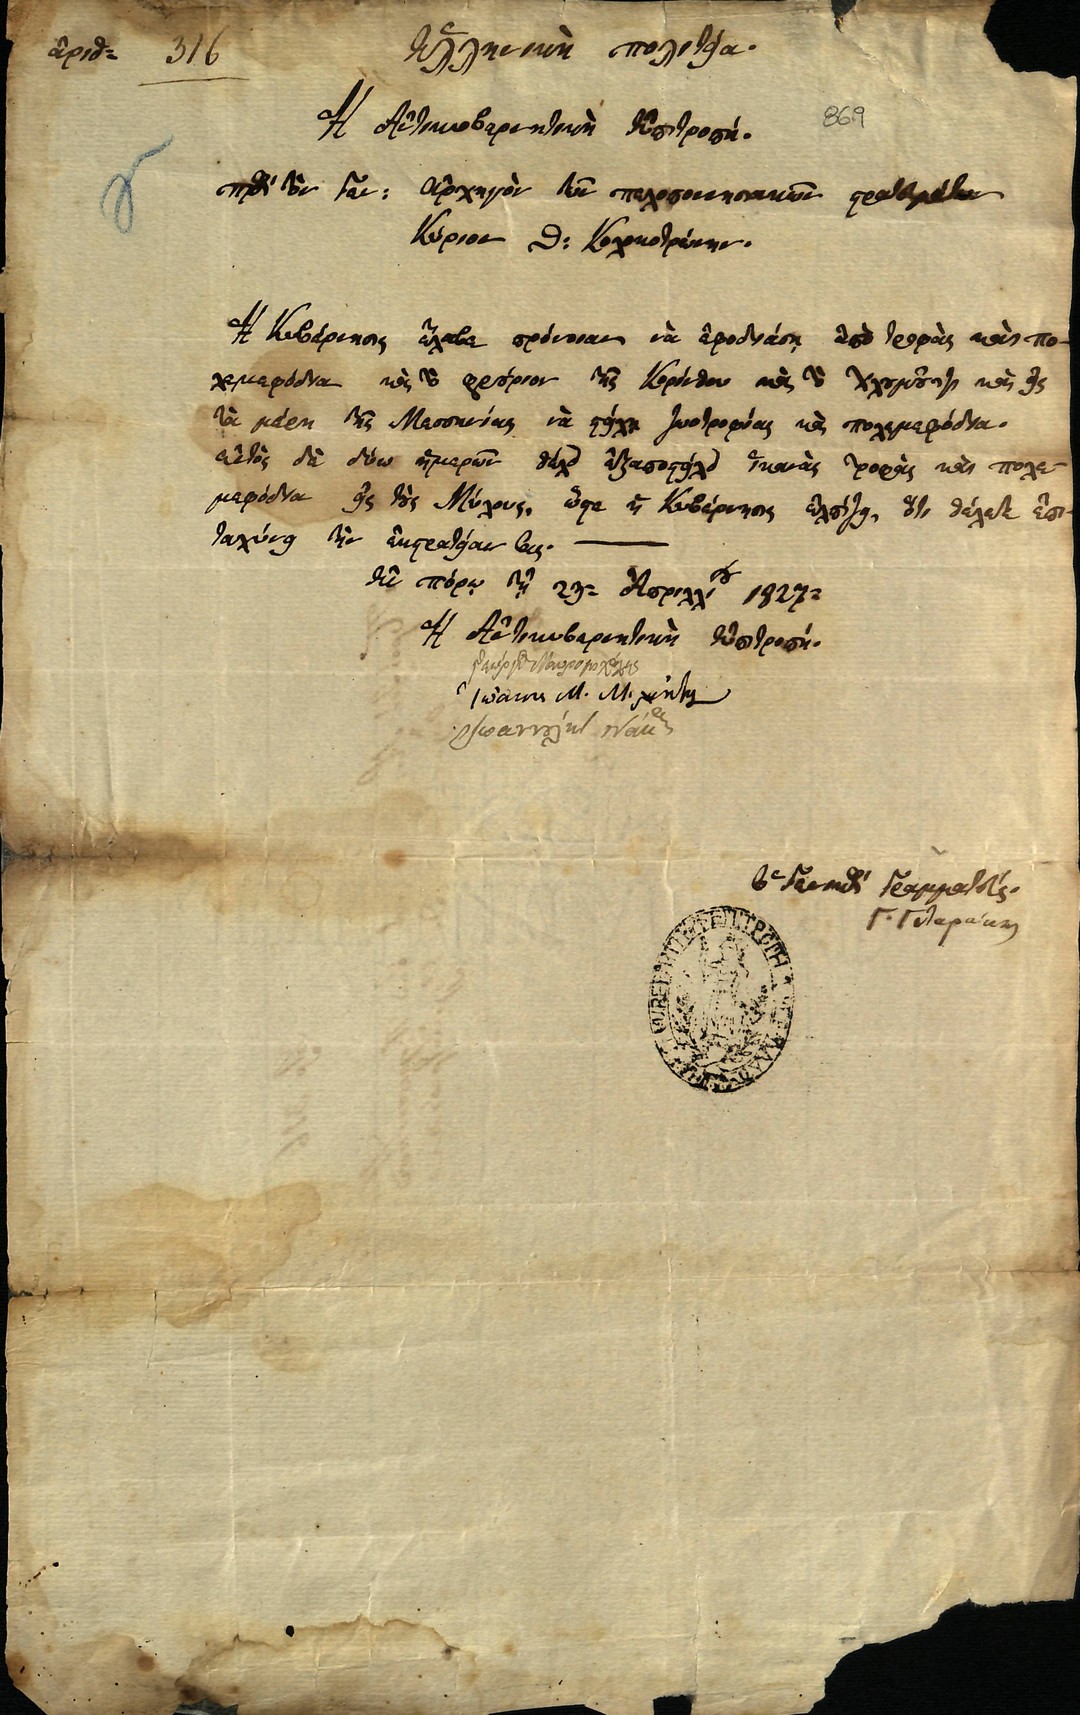 ἀριθ= 316
Ἑλληνικὴ πολιτεία.
Ἡ Ἀντικυβερνητικὴ Ἐπιτροπή.
869
πρὸς τὸν Γεν: Ἀρχηγὸν τῶν πελοποννησιακῶν στρατευμάτων
Κύριον Θ: Κολοκοτρώνην.
Ἡ Κυβέρνησις ἔλαβε πρόνοιαν νὰ ἐφοδιάσῃ ἀπὸ τροφὰς καὶ πο-
λεμεφόδια καὶ τὸ φρούριον τῆς Κορίνθου καὶ τὸ καὶ εἰς
τὰ μέρη τῆς Μεσσηνίας νὰ στείλῃ ζωοτροφίας καὶ πολεμεφόδια.
ἐντὸς δὲ δύω ἡμερῶν θέλει ἐξαποστείλει ἱκανὰς τροφὰς καὶ πολε-
μεφόδια εἰς τοὺς Μύλους, ὥστε ἡ Κυβέρνησις ἐλπίζει, ὅτι θέλετε ἐπι-
ταχύνει τὴν ἐκστρατείαν σας.
Ἐν πόρῳ τῇ 23= Ἀπριλλίου 1827=
Ἡ Ἀντικυβερνητικὴ Ἐπιτροπή.
Γεώργιος Μαυρομιχάλης
Ἰωάννης Μ. Μιλαήτης
Ἰωαννούλης Νάκος
ὁ Γενικὸς Γραμματεύς.
Γ. Γλαράκης